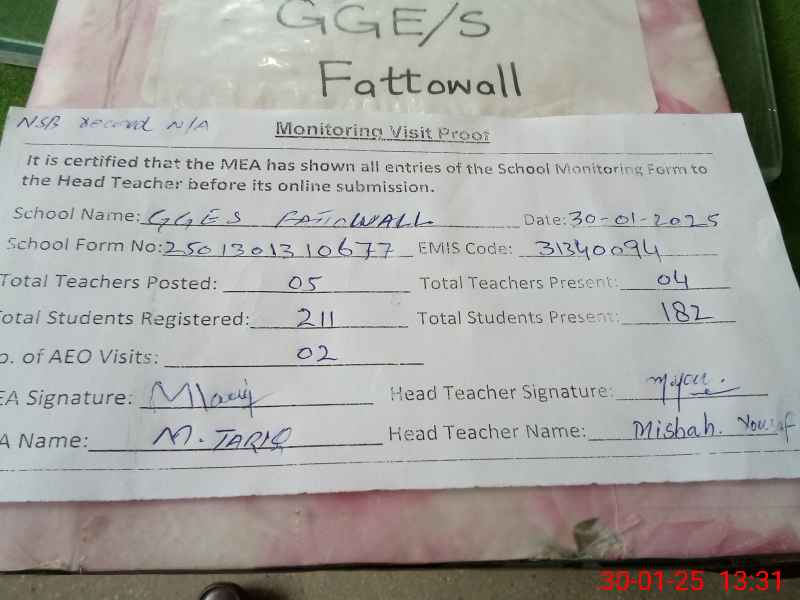 GGE/S
Fattowall
NSB record N/A
Monitoring Visit Proof
It is certified that the MEA has shown all entries of the School Monitoring Form to
the Head Teacher before its online submission.
School Name: GGES FATTOWALL Date: 30-01-2025
School Form No: 2501301310677 EMIS Code: 31340094
Total Teachers Posted: 05 Total Teachers Present: 04
Total Students Registered: 211 Total Students Present: 182
o. of AEO Visits: 02
EA Signature: MTariq Head Teacher Signature:
A Name: M. TARIQ Head Teacher Name: Misbah. Yousaf
30-01-25 13:31